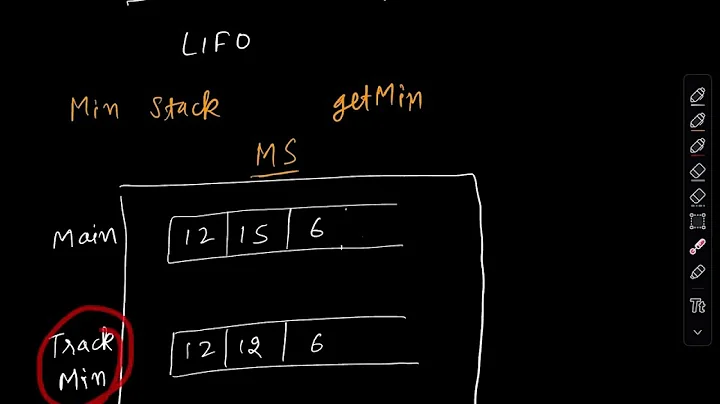 LIFO
Min Stack getMin
MS
Main 12 15 6
Track 12 12 6
Min
Tt